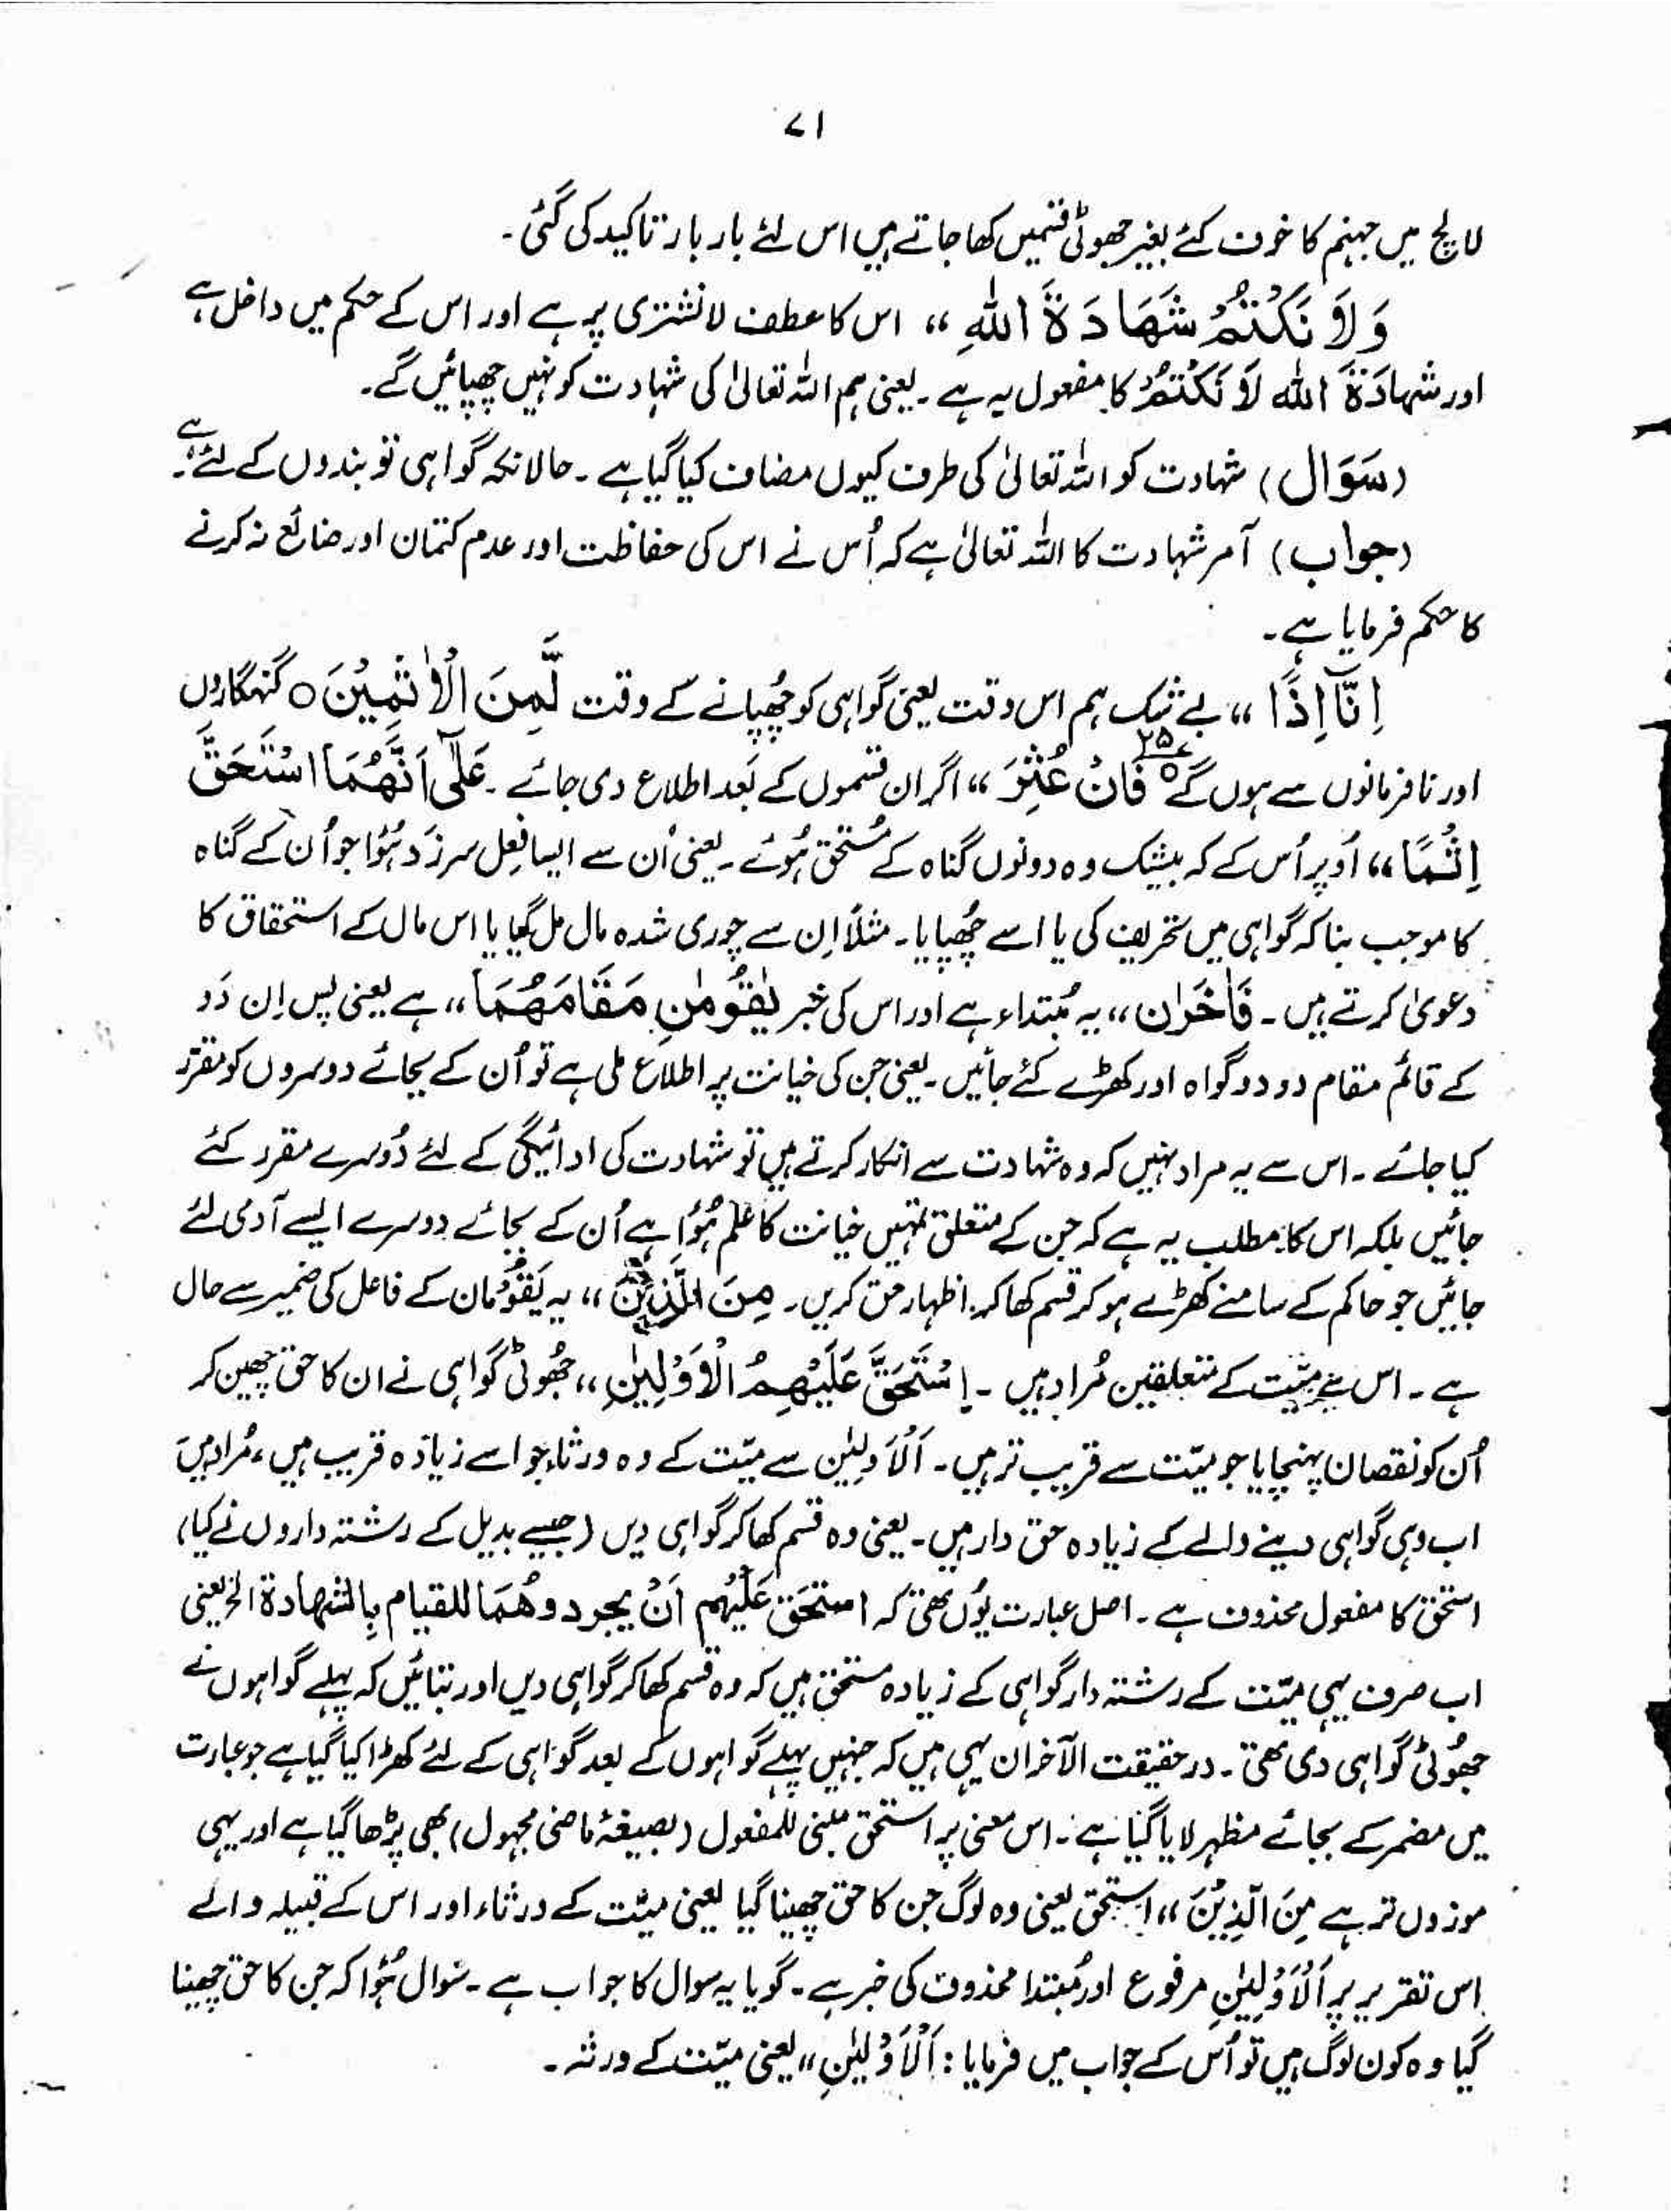 ۷۱
لالچ میں جہنم کا خوف کئے بغیر جھوٹی قسمیں کھا جاتے ہیں اس لئے بار بار تاکید کی گئی۔
وَلَا نَكْتُمُ شَهَادَةَ اللّٰهِ ،، اس کا عطف لانشتری پر ہے اور اس کے حکم میں داخل ہے
اور شہادَۃَ اللہ لَا نَکْتُمُ کا مفعول بہ ہے۔ یعنی ہم اللہ تعالیٰ کی شہادت کو نہیں چھپائیں گے۔
(سَوَال) شہادت کو اللہ تعالیٰ کی طرف کیوں مضاف کیا گیا ہے۔ حالانکہ گواہی تو بندوں کے لئے ہے۔
(جواب) آمر شہادت کا اللہ تعالیٰ ہے کہ اُس نے اس کی حفاظت اور عدم کتمان اور ضائع نہ کرنے
کا حکم فرمایا ہے۔
اِنَّآ اِذًا ،، بے شک ہم اس وقت یعنی گواہی کو چھپانے کے وقت لَّمِنَ الْاٰثِمِيْنَ ○ گنہگاروں
اور نافرمانوں سے ہوں گے ○ ۲۵ فَاِنْ عُثِرَ ،، اگر ان قسموں کے بَعد اطلاع دی جائے۔ عَلٰٓى اَنَّهُمَا اسْتَحَقَّ
اِثْمًا ،، اُوپر اُس کے کہ بیشک وہ دونوں گناہ کے مُستحق ہُوئے۔ یعنی اُن سے ایسا فِعل سرزَد ہُؤا جو اُن کے گناہ
کا موجب بنا کہ گواہی میں تحریف کی یا اسے چُھپایا۔ مثلاً اِن سے چوری شدہ مال مل گیا یا اس مال کے استحقاق کا
دعویٰ کرتے ہیں۔ فَاٰخَرٰن ،، یہ مُبتداء ہے اور اس کی خبر يَقُوْمٰنِ مَقَامَهُمَا ،، ہے یعنی پس اِن دَو
کے قائم مقام دو دو گواہ اور کھڑے کئے جائیں۔ یعنی جن کی خیانت پر اطلاع ملی ہے تو اُن کے بجائے دوسروں کو مقرّر
کیا جائے۔ اس سے یہ مراد نہیں کہ وہ شہادت سے انکار کرتے ہیں تو شہادت کی ادائیگی کے لئے دُوسرے مقرر کئے
جائیں بلکہ اس کا مطلب یہ ہے کہ جن کے متعلق تمہیں خیانت کا علم ہُؤا ہے اُن کے بجائے دوسرے ایسے آدمی لئے
جائیں جو حاکم کے سامنے کھڑے ہو کر قسم کھا کر اظہارِ حق کریں۔ مِنَ الَّذِيْنَ ،، یہ یَقُوْمَان کے فاعل کی ضمیر سے حال
ہے۔ اس سے میّت کے متعلقین مُراد ہیں۔ اِسْتَحَقَّ عَلَيْهِمُ الْاَوْلَيٰنِ ،، جھُوٹی گواہی نے ان کا حق چھین کر
اُن کو نقصان پہنچایا جو میّت سے قریب تر ہیں۔ اَلْاَوْلَیٰنِ سے میّت کے وہ ورثاء جو اسے زیادہ قریب ہیں، مُراد ہیں
اب وہی گواہی دینے والے کے زیادہ حق دار ہیں۔ یعنی وہ قسم کھا کر گواہی دیں (جیسے بدیل کے رشتہ داروں نے کیا)
استحق کا مفعول محذوف ہے۔ اصل عبارت یُوں تھی کہ استحَقَ عَلَيْهِم اَنْ يجردوهُمَا للقيام بِالشهادة الخ یعنی
اب صرف یہی میّت کے رشتہ دار گواہی کے زیادہ مستحق ہیں کہ وہ قسم کھا کر گواہی دیں اور بتائیں کہ پہلے گواہوں نے
جھُوٹی گواہی دی تھی۔ درحقیقت الآخران یہی ہیں کہ جنہیں پہلے گواہوں کے بعد گواہی کے لئے کھڑا کیا گیا ہے جو عبارت
میں مضمر کے بجائے مظہر لایا گیا ہے۔ اس معنی پر استحق مبنی للمفعول (بصیغۂ ماضی مجہول) بھی پڑھا گیا ہے اور یہی
موزوں تر ہے مِنَ الَّذِيْنَ ،، استحق یعنی وہ لوگ جن کا حق چھینا گیا یعنی میّت کے ورثاء اور اس کے قبیلہ والے
اس تقریر پر اَلْاَوْلَیٰنِ مرفوع اور مُبتدا محذوف کی خبر ہے۔ گویا یہ سوال کا جواب ہے۔ سَوال ہُؤا کہ جن کا حق چھینا
گیا وہ کون لوگ ہیں تو اُس کے جواب میں فرمایا: اَلْاَوْلَیٰنِ ،، یعنی میّت کے ورثہ۔